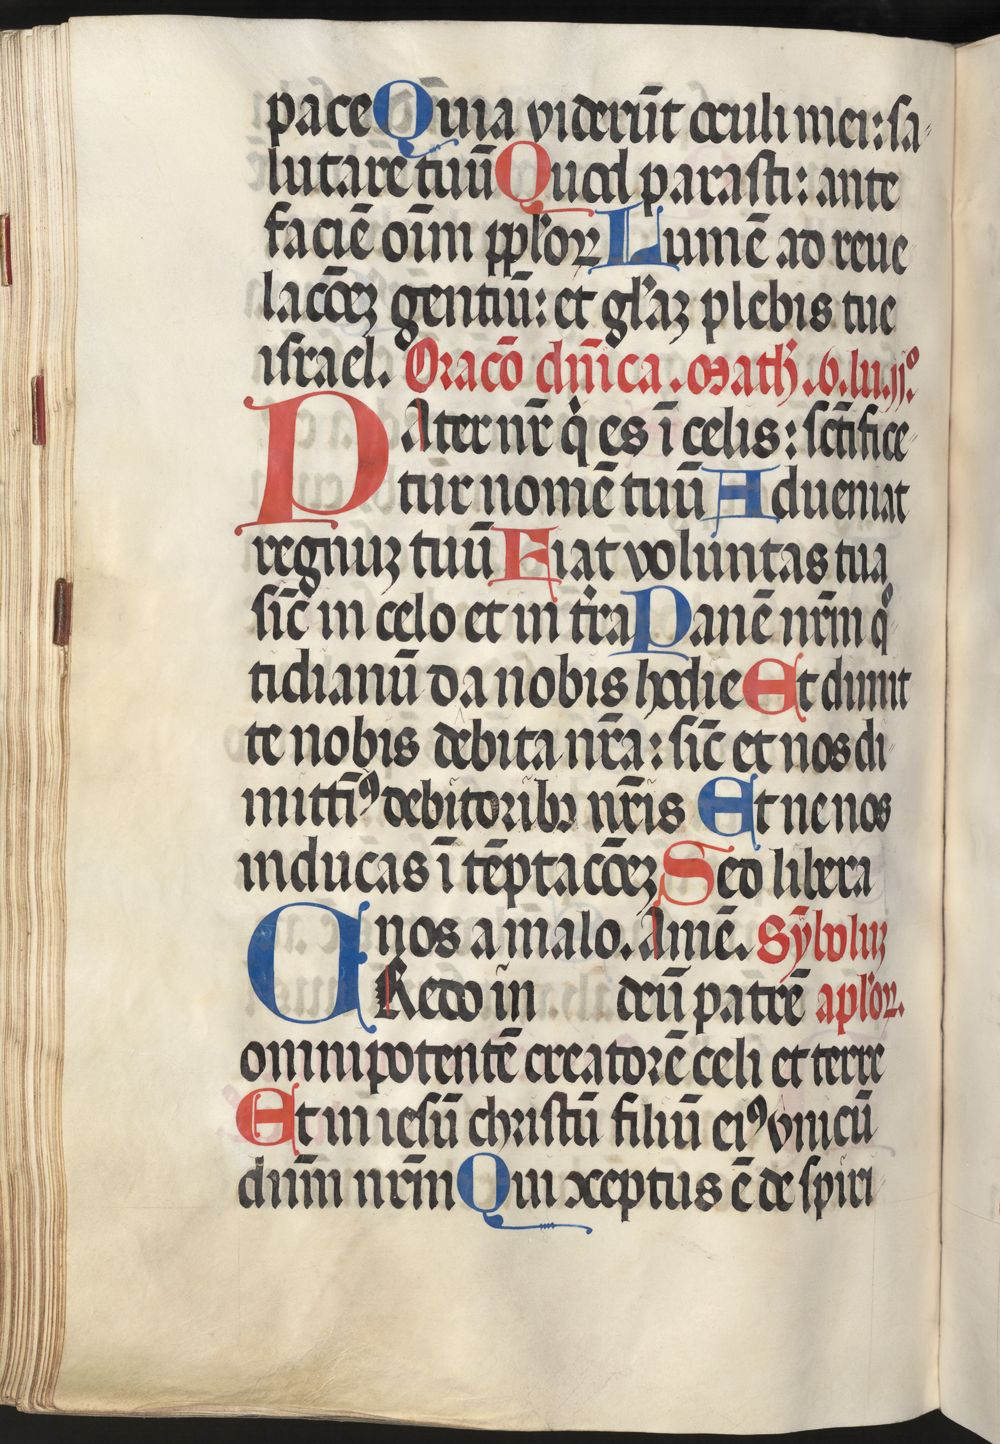 pace Quia viderūt oculi mei: sa-
lutare tuū Quod parasti: ante
faciē oīm pplōꝝ Lumē ad reue
lacōeꝫ gentiū: et gl̄aꝫ plebis tue
israel. Oracō dn̄ica . Math̄ . 6 . lu. ij.º
PAter nr̄ q̇ es ī celis: sct̄ifice-
tur nomē tuū Adueniat
regnuꝫ tuū Fiat voluntas tua
sic̄ in celo et in tr̄a Panē nr̄m qº
tidianū da nobis hodie Et dimit
te nobis debita nr̄a: sic̄ et nos di
mittīꝰ debitoribꝫ nr̄is Et ne nos
inducas ī tēptacōeꝫ Sed libera
nos a malo. Amē. Sȳboluꝫ
CRedo in deū patrē apl̄oꝝ.
omnipotentē creatorē celi et terre
Et in iesū christū filiū eiꝰ vnicū
dn̄m nr̄m Qui ↄceptus ē de spiri